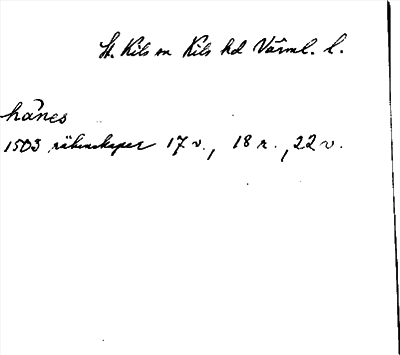 St. Kils sn Kils hd Värml. l.
hånes
1503 räkenskaper 17 v., 18 r., 22 v.